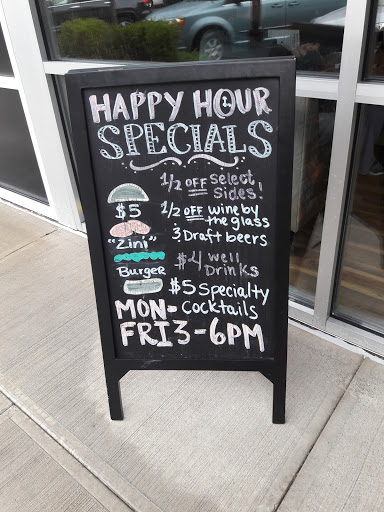 HAPPY HOUR
SPECIALS
1/2 OFF select
sides!
$5
"Zini"
Burger
1/2 OFF wine by
the glass
3. Draft beers
$4 well
Drinks
$5 Specialty
Cocktails
MON-
FRI 3-6PM